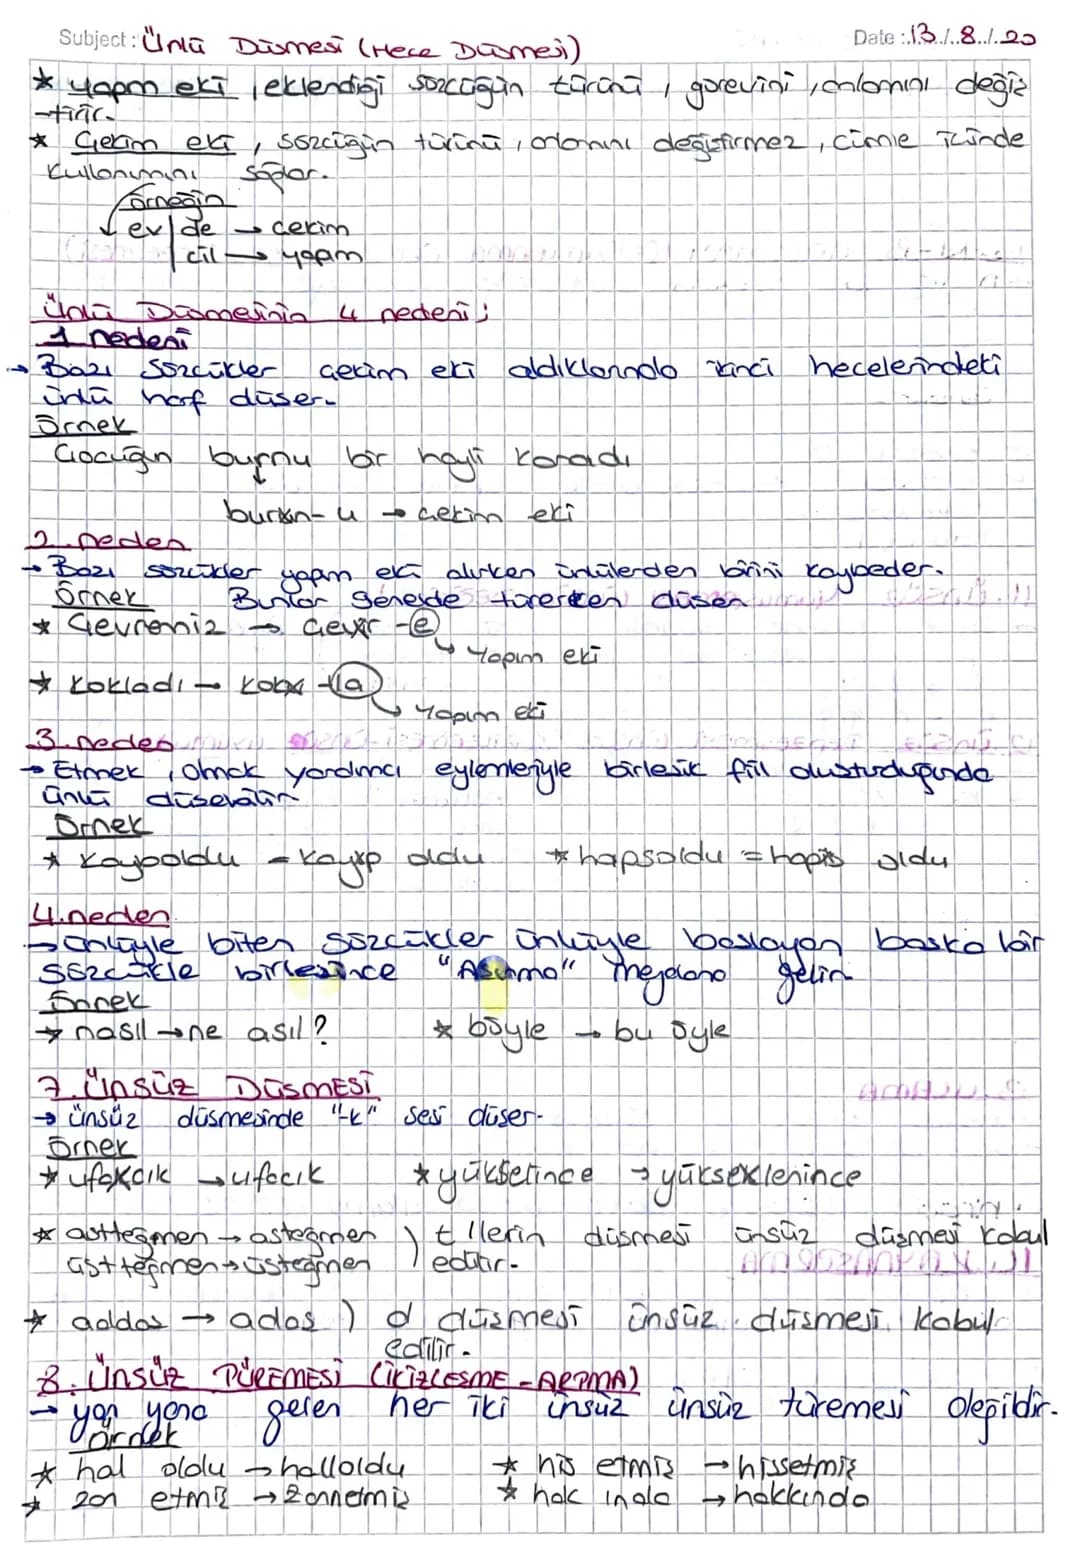 Subject: Ünlü Düşmesi (Hece Düşmesi) Date: 13/8/20
* yapım eki, eklendiği sözcüğün türünü, görevini, anlamını değiş
-tirir.
* Çekim eki, sözcüğün türünü, anlamını değiştirmez, cümle içinde
kullanımını sağlar.
örneğin
ev | de → çekim
| cil → yapım
Ünlü Düşmesinin 4 nedeni;
1 nedeni
→ Bazı sözcükler çekim eki aldıklarında ikinci hecelerindeki
ünlü harf düşer.
Örnek
Çocuğun burnu bir hayli kanadı
burun-u → çekim eki
2. neden
→ Bazı sözcükler yapım eki alırken ünlülerden birini kaybeder.
Örnek Bunlar genelde türerken düşer
* Çevreniz → çevir-e
yapım eki
* kokladı → koku-la
yapım eki
3. neden
→ Etmek, olmak yardımcı eylemleriyle birleşik fiil oluşturduğunda
ünlü düşebilir
Örnek
* kayboldu = kayıp oldu * hapsoldu = hapis oldu
4. neden
→ ünlüyle biten sözcükler ünlüyle başlayan başka bir
sözcükle birleşince "Aşınma" meydana gelir.
Örnek
* nasıl → ne asıl? * böyle → bu öyle
7. ÜNSÜZ DÜŞMESİ
→ ünsüz düşmesinde "-k" sesi düşer.
Örnek
* ufakcık → ufacık * yükselince → yükseklenince
* astteğmen → asteğmen ) t'lerin düşmesi ünsüz düşmesi kabul
üstteğmen → üsteğmen ) edilir.
* addaş → adaş ) d düşmesi ünsüz düşmesi kabul
edilir.
8. ÜNSÜZ TÜREMESİ (İKİZLEŞME - ARTMA)
→ yan yana gelen her iki ünsüz ünsüz türemesi değildir.
örnek
* hal oldu → halloldu * his etmiş → hissetmiş
* zan etmiş → zannetmiş * hak ında → hakkında